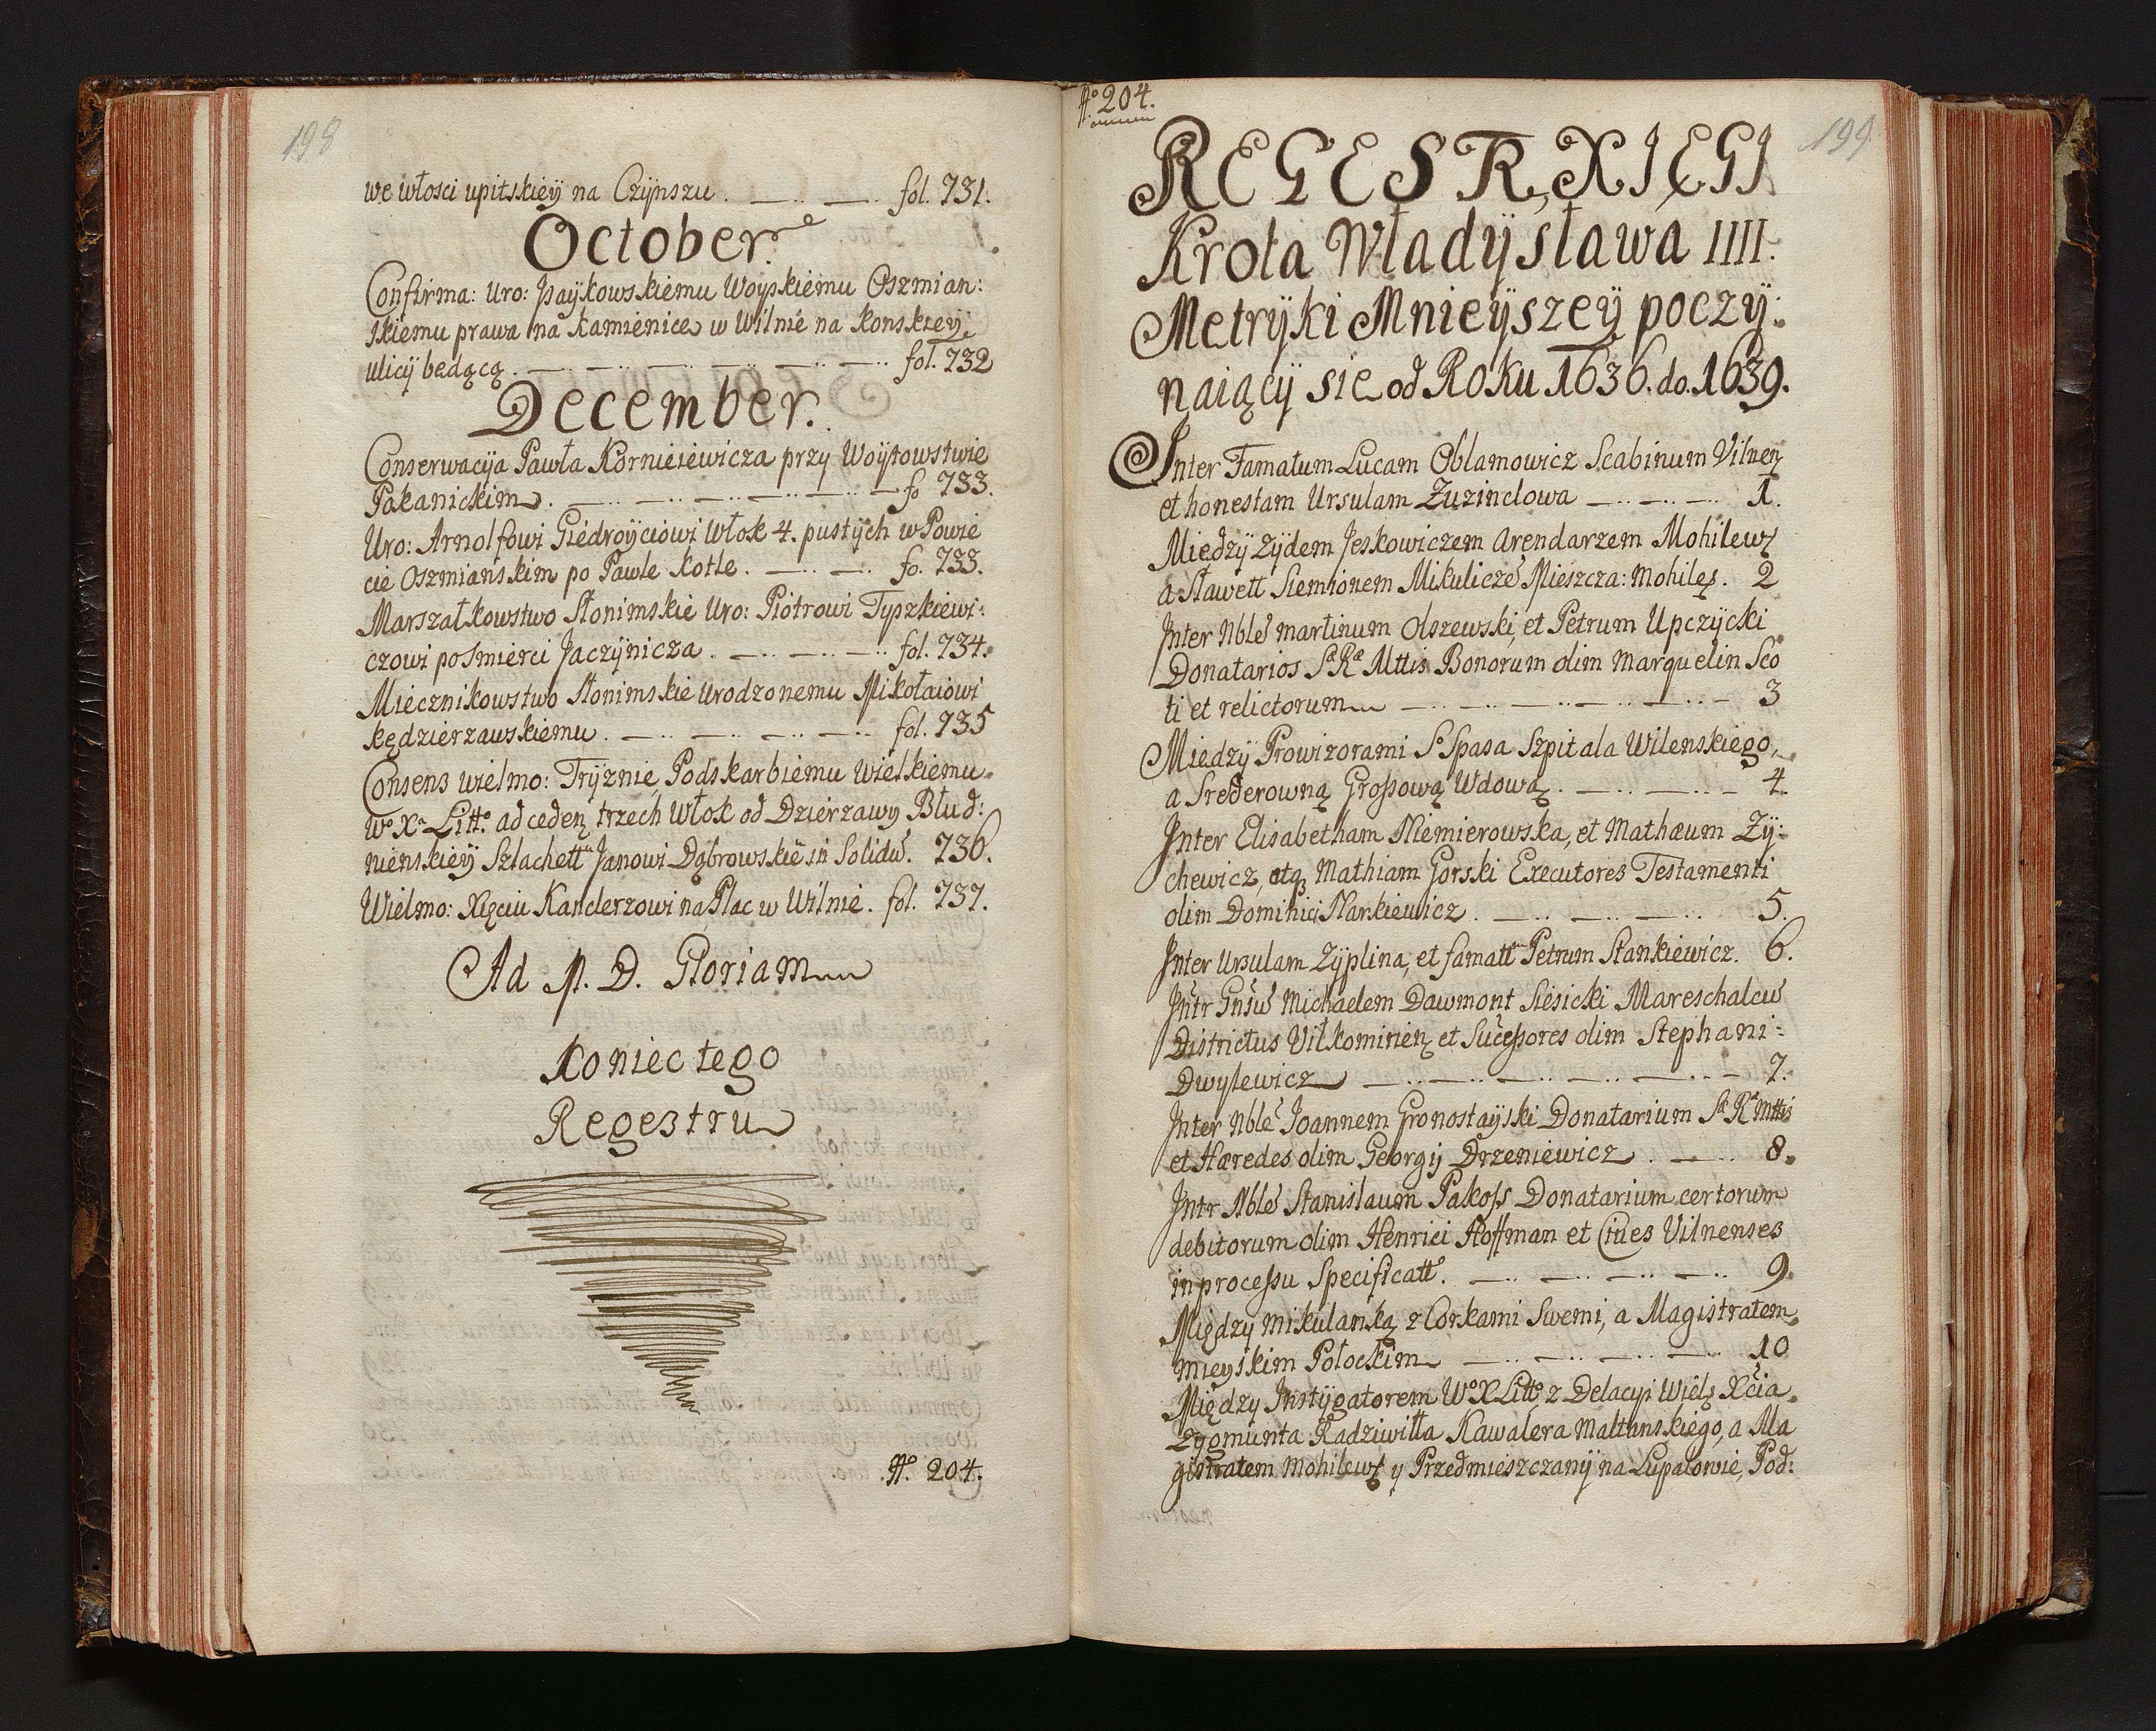 198
we włosci upitskieÿ na Czÿnszu . fol. 731.
October.
Confirma: Uro: Paÿkowskiemu Woyskiemu Oszmian:
skiemu prawa na kamienice w Wilnie na konskieÿ
ulicÿ bedącą . fol. 732
December.
Conserwacÿa Pawła Kornieiewicza przy Woÿtowstwie
Pokanickim . fo 733.
Uro: Arnolfowi Giedroÿciowi Włok 4. pustÿch w Powie
cie Oszmianskim po Pawle Kotle . fo. 733.
Marszałkowstwo Słonimskie Uro: Piotrowi Tyszkiewi:
czowi po Smierci Jaczÿnicza . fol. 734.
Miecznikowstwo Słonimskie Urodzonemu Mikołaiowi
kędzierzawskiemu . fol. 735
Consens wielmo: Trÿznie, Podskarbiemu Wielkiemu
Wº Xª Littº ad cedeń trzech Włok od Dzierzawy Błud:
nienskieÿ Szlachett Janowi Dąbrowskie in Solidū. 736.
Wielmo: Xięciu Kanclerzowi na Plac w Wilnie . fol. 737.
Ad M. D. Gloriam
Koniec tego
Regestru
Nº. 204.
Nº 204.
199
REGESTR, XIĘGI
Krola Władÿsława IIII.
Metrÿki Mnieÿszeÿ poczÿ:
naiącÿ sie od Roku 1636. do. 1639.
Inter Famatum Lucam Oblamowicz Scabinum Vilneń
et honestam Ursulam Zuzinelowa 1.
Miedzÿ Zÿdem Jeskowiczem Arendarzem Mohilews
a Sławett Siemionem Mikulicze Mieszcza: Mohiles. 2
Inter Nble martinum Olszewski, et Petrum Upczÿcki
Donatarios Sæ Ræ Mttis Bonorum olim Marquelin Sco
ti et relictorum 3
Miedzÿ Prowizorami Sº Spasa Szpitala Wilenskiego,
a Srederowną Grossową Wdową . 4.
Inter Elisabetham Niemierowska, et Mathæum Zÿ:
chewicz, atq3 Mathiam Gorski Executores Testamenti
olim Dominici Narkiewicz . 5.
Inter Ursulam Zÿplina, et famatt Petrum Stankiewicz. 6.
Intr Gnsū Michaelem Dawmont Siesicki Mareschalcū
Districtus Viłkomirień et Sucessores olim Stephani:
Dwylewicz 7.
Inter Nble Joannem Gronostaÿski Donatarium Sæ Ræ Mttis
et Hæredes olim Georgij Drzeniewicz . 8.
Intr Nble Stanislaum Pakoss Donatarium certorum
debitorum olim Henrici Hoffman et Ciues Vilnenses
in processu Specificatt . 9.
Między Mikulanką z Corkami Swemi, a Magistratem
mieyskim Połockim 10
Między Instÿgatorem Wº X Littº z Delacyi Wiels Xcia
Zygmunta Radziwiłła Kawalera Maltanskiego, a Ma
gistratem Mohilews y Przedmieszczanÿ na Łupałowie, Pod: